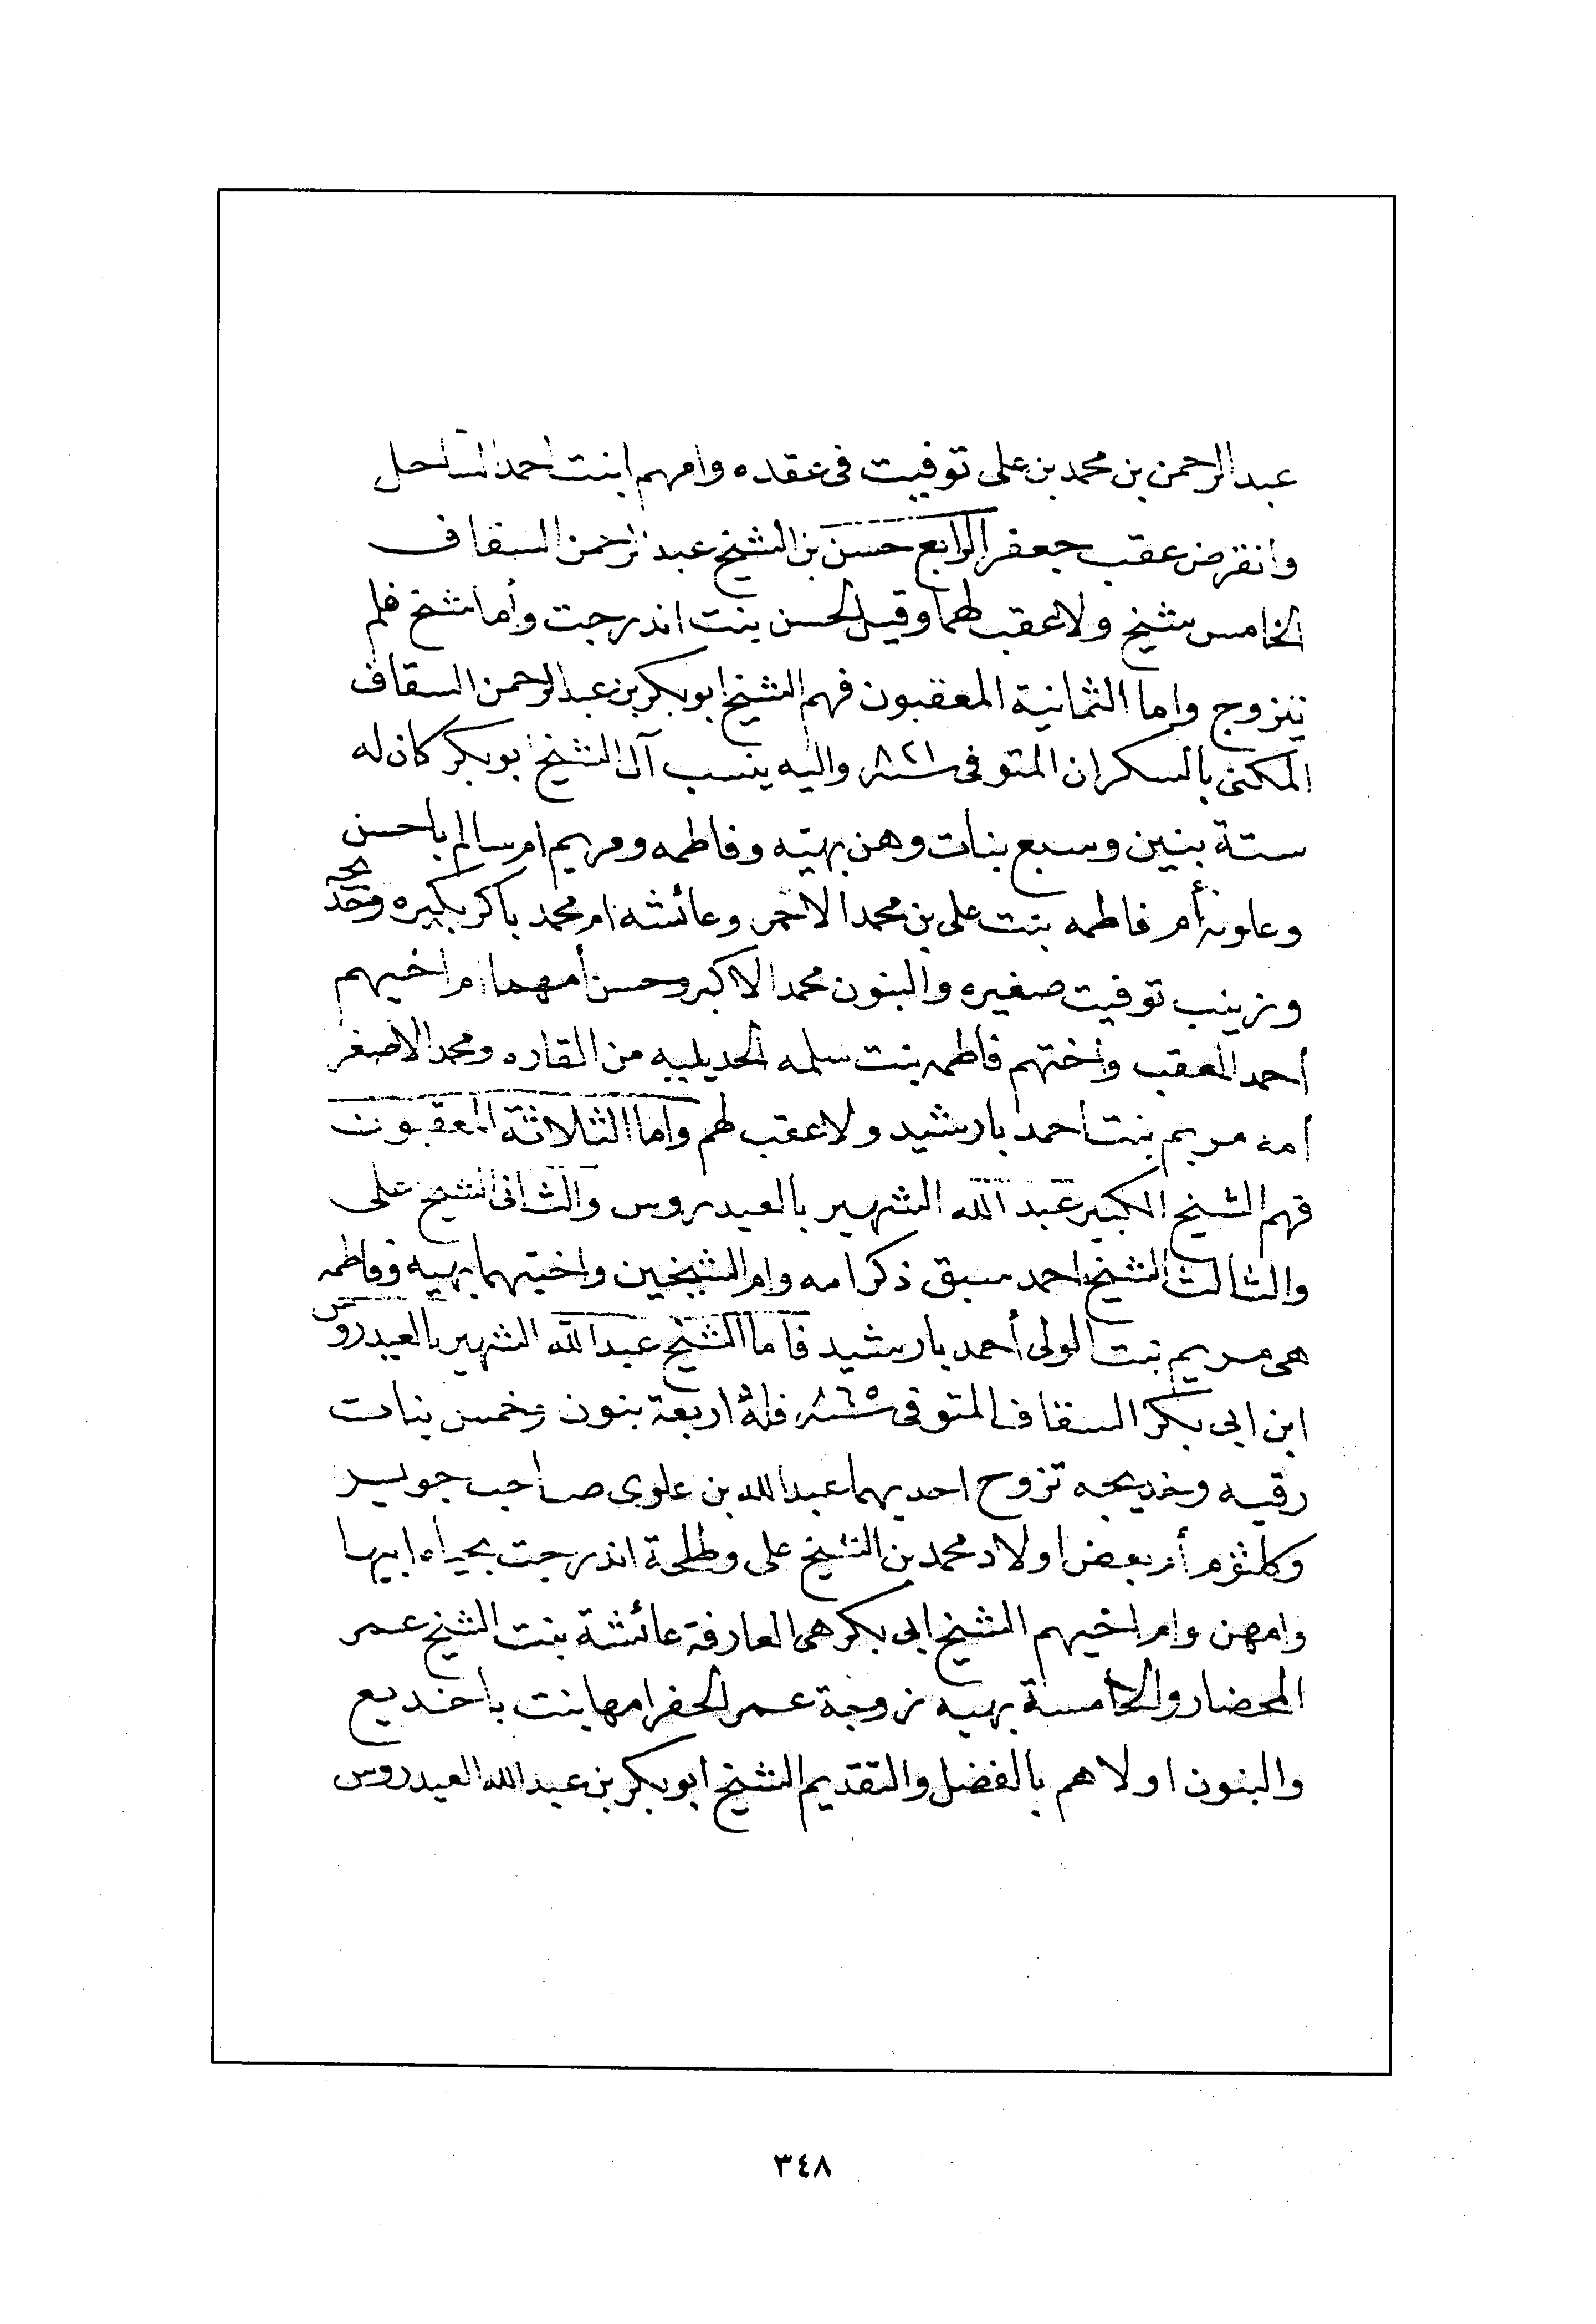 عبدالرحمن بن محمد بن على توفيت فى عقده وامهم ابنت احمد الساحل
وانقرض عقب جعفر الرابع حسن بن الشيخ عبدالرحمن السقاف
الخامس شيخ ولاعقب لهما وقيل لحسن بنت اندرجت وأما شيخ فلم
يتزوج واما الثمانية المعقبون فهم الشيخ ابوبكر بن عبدالرحمن السقاف
المكنى بالسكران المتوفى سنة ٨٢١ واليه ينسب آل الشيخ ابوبكر كان له
ستة بنين وسبع بنات وهن بهيه وفاطمه ومريم ام سالم باحسن
وعلويه أم فاطمه بنت على بن محمد الاحمر وعائشه ام محمد باكر بكيره وخديجه
وزينب توفيت صغيره والبنون محمد الاكبر وحسن أمهما ام اخيهم
أحمد المعقب واختهم فاطمه بنت سلمه الحديليه من القاره ومحمد الاصغر
أمه مريم بنت احمد بارشيد ولاعقب لهم واما الثلاثة المعقبون
فهم الشيخ الكبير عبد الله الشهير بالعيدروس والثانى الشيخ على
والثالث الشيخ احمد سبق ذكر امه وام الشيخين واختهما بهيه وفاطمه
هى مريم بنت الولى أحمد بارشيد فاما الشيخ عبدالله الشهير بالعيدروس
ابن ابى بكر السقاف المتوفى سنة ٨٦٥ فله اربعة بنون وخمس بنات
رقيه وخديجه تزوج احديهما عبدالله بن علوى صاحب جويسر
وكلثوم أم بعض اولاد محمد بن الشيخ على وطلحة اندرجت بحياه ابيها
وامهن وام اخيهم الشيخ ابى بكر هى العارفة عائشة بنت الشيخ عمر
المحضار والخامسة بهيه زوجة عمر الحفرامها بنت باخديع
والبنون اولاهم بالفضل والتقديم الشيخ ابوبكر بن عبدالله العيدروس
٣٤٨